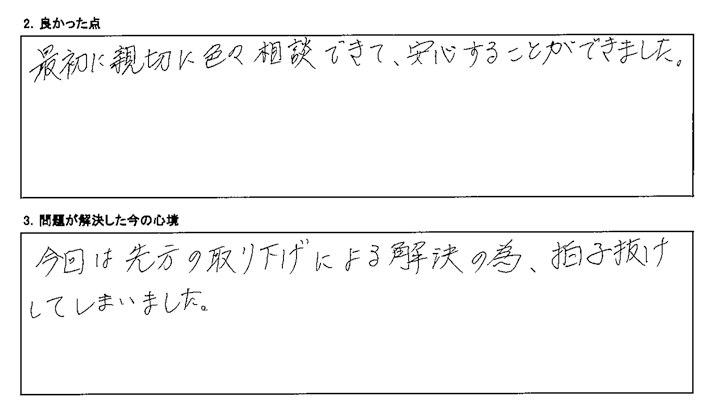 2. 良かった点
最初に親切に色々相談できて、安心することができました。
3. 問題が解決した今の心境
今回は先方の取り下げによる解決の為、拍子抜け
してしまいました。